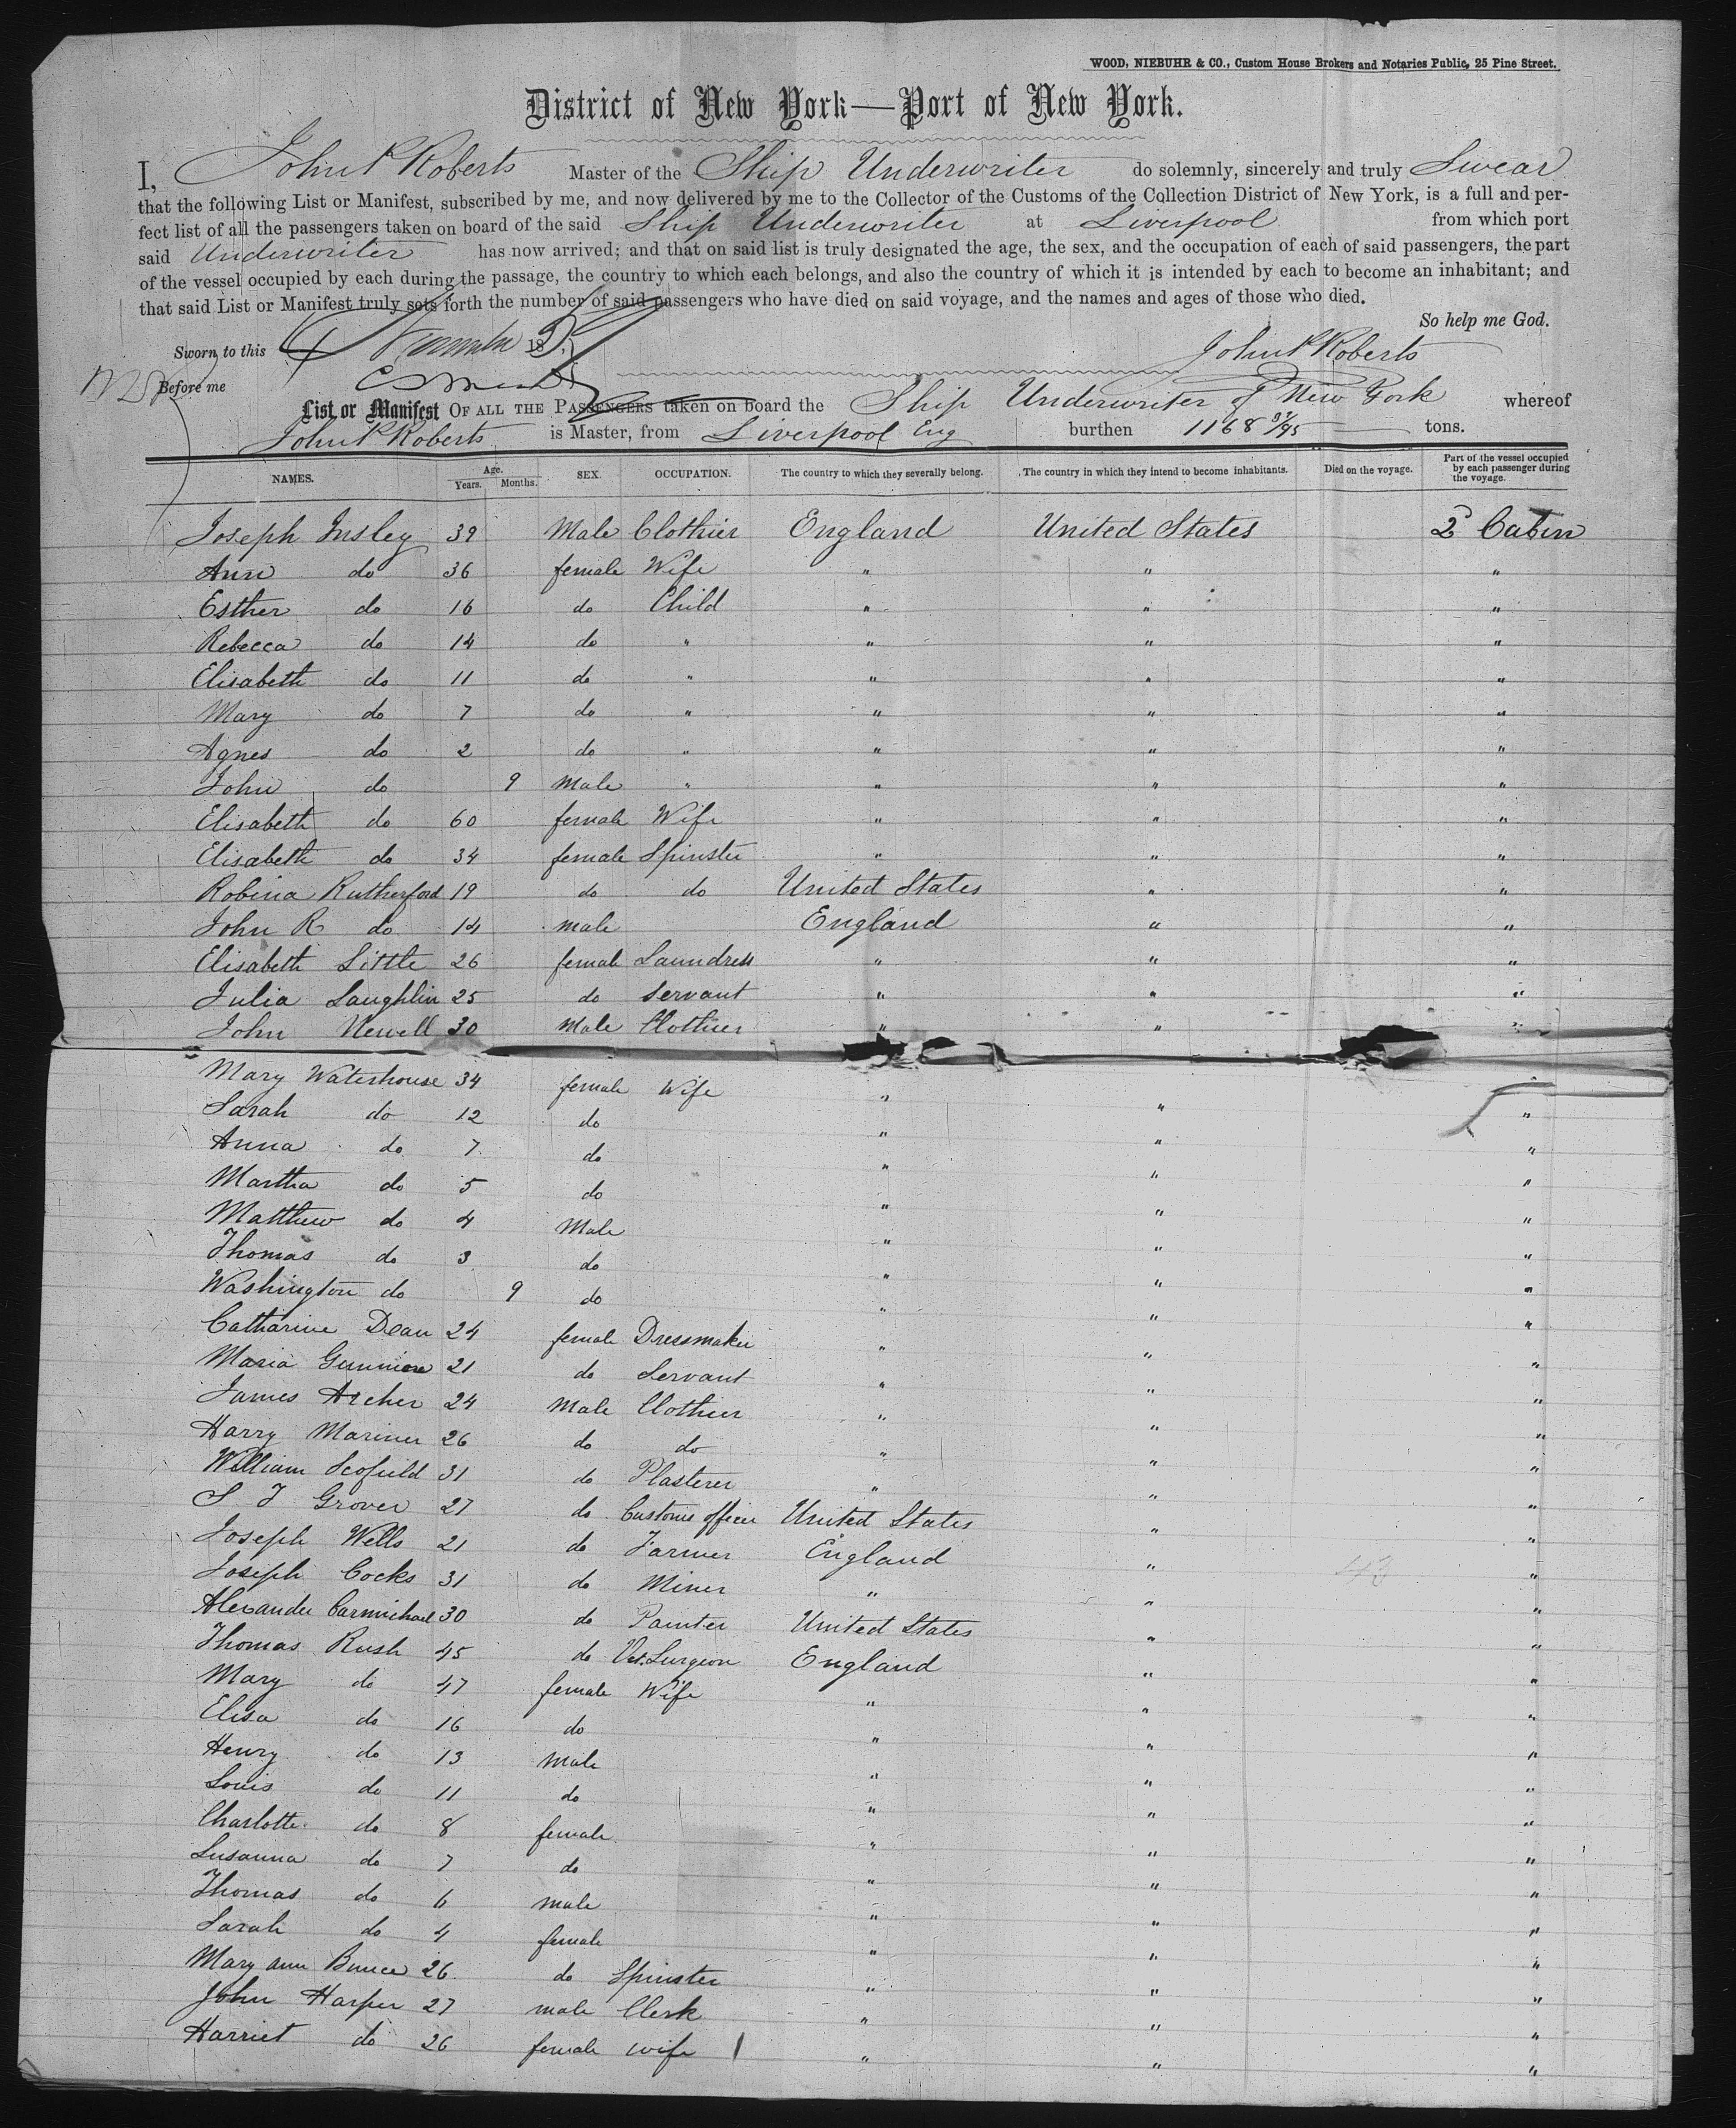 WOOD, NIEBUHR & CO., Custom House Brokers and Notaries Public, 25 Pine Street.
District of New York—Port of New York.
I, John P Roberts Master of the Ship Underwriter do solemnly, sincerely and truly Swear
that the following List or Manifest, subscribed by me, and now delivered by me to the Collector of the Customs of the Collection District of New York, is a full and per-
fect list of all the passengers taken on board of the said Ship Underwriter at Liverpool from which port
said Underwriter has now arrived; and that on said list is truly designated the age, the sex, and the occupation of each of said passengers, the part
of the vessel occupied by each during the passage, the country to which each belongs, and also the country of which it is intended by each to become an inhabitant; and
that said List or Manifest truly sets forth the number of said passengers who have died on said voyage, and the names and ages of those who died.
So help me God.
Sworn to this 4 18 John P Roberts
Before me
List or Manifest OF ALL THE PASSENGERS taken on board the Ship Underwriter of New York whereof
John P Roberts is Master, from Liverpool Eng burthen 1168 tons.
NAMES. Age. Years. Months. SEX. OCCUPATION. The country to which they severally belong. The country in which they intend to become inhabitants. Died on the voyage. Part of the vessel occupied by each passenger during the voyage.
Joseph Insley 39 Male Clothier England United States 2d Cabin
Ann do 36 female Wife " " "
Esther do 16 do Child " " "
Rebecca do 14 do " " " "
Elisabeth do 11 do " " " "
Mary do 7 do " " " "
Agnes do 2 do " " " "
John do 9 Male " " " "
Elisabeth do 60 female Wife " " "
Elisabeth do 34 female Spinster " " "
Robina Rutherford 19 do do United States " "
John R do 14 male England " "
Elisabeth Little 26 female Laundress " " "
Julia Laughlin 25 do Servant " " "
John Newell 30 Male Clothier " " "
Mary Waterhouse 34 female Wife " " "
Sarah do 12 do " " "
Anna do 7 do " " "
Martha do 5 do " " "
Matthew do 4 Male " " "
Thomas do 3 do " " "
Washington do 9 do " " "
Catharine Dean 24 female Dressmaker " " "
Maria 21 do Servant " " "
James Archer 24 Male Clothier " " "
Harry Mariner 26 do do " " "
William Scofield 31 do Plasterer " " "
S J Grover 27 do Customs officer United States " "
Joseph Wells 21 do Farmer England " "
Joseph Cocks 31 do Miner " " "
Alexander Carmichael 30 do Painter United States " "
Thomas Rush 45 do Vet. Surgeon England " "
Mary do 47 female Wife " " "
Elisa do 16 do " " "
Henry do 13 Male " " "
Louis do 11 do " " "
Charlotte do 8 female " " "
Susanna do 7 do " " "
Thomas do 6 male " " "
Sarah do 4 female " " "
Mary ann Bunce 26 do Spinster " " "
John Harper 27 male Clerk " " "
Harriet do 26 female wife " " "